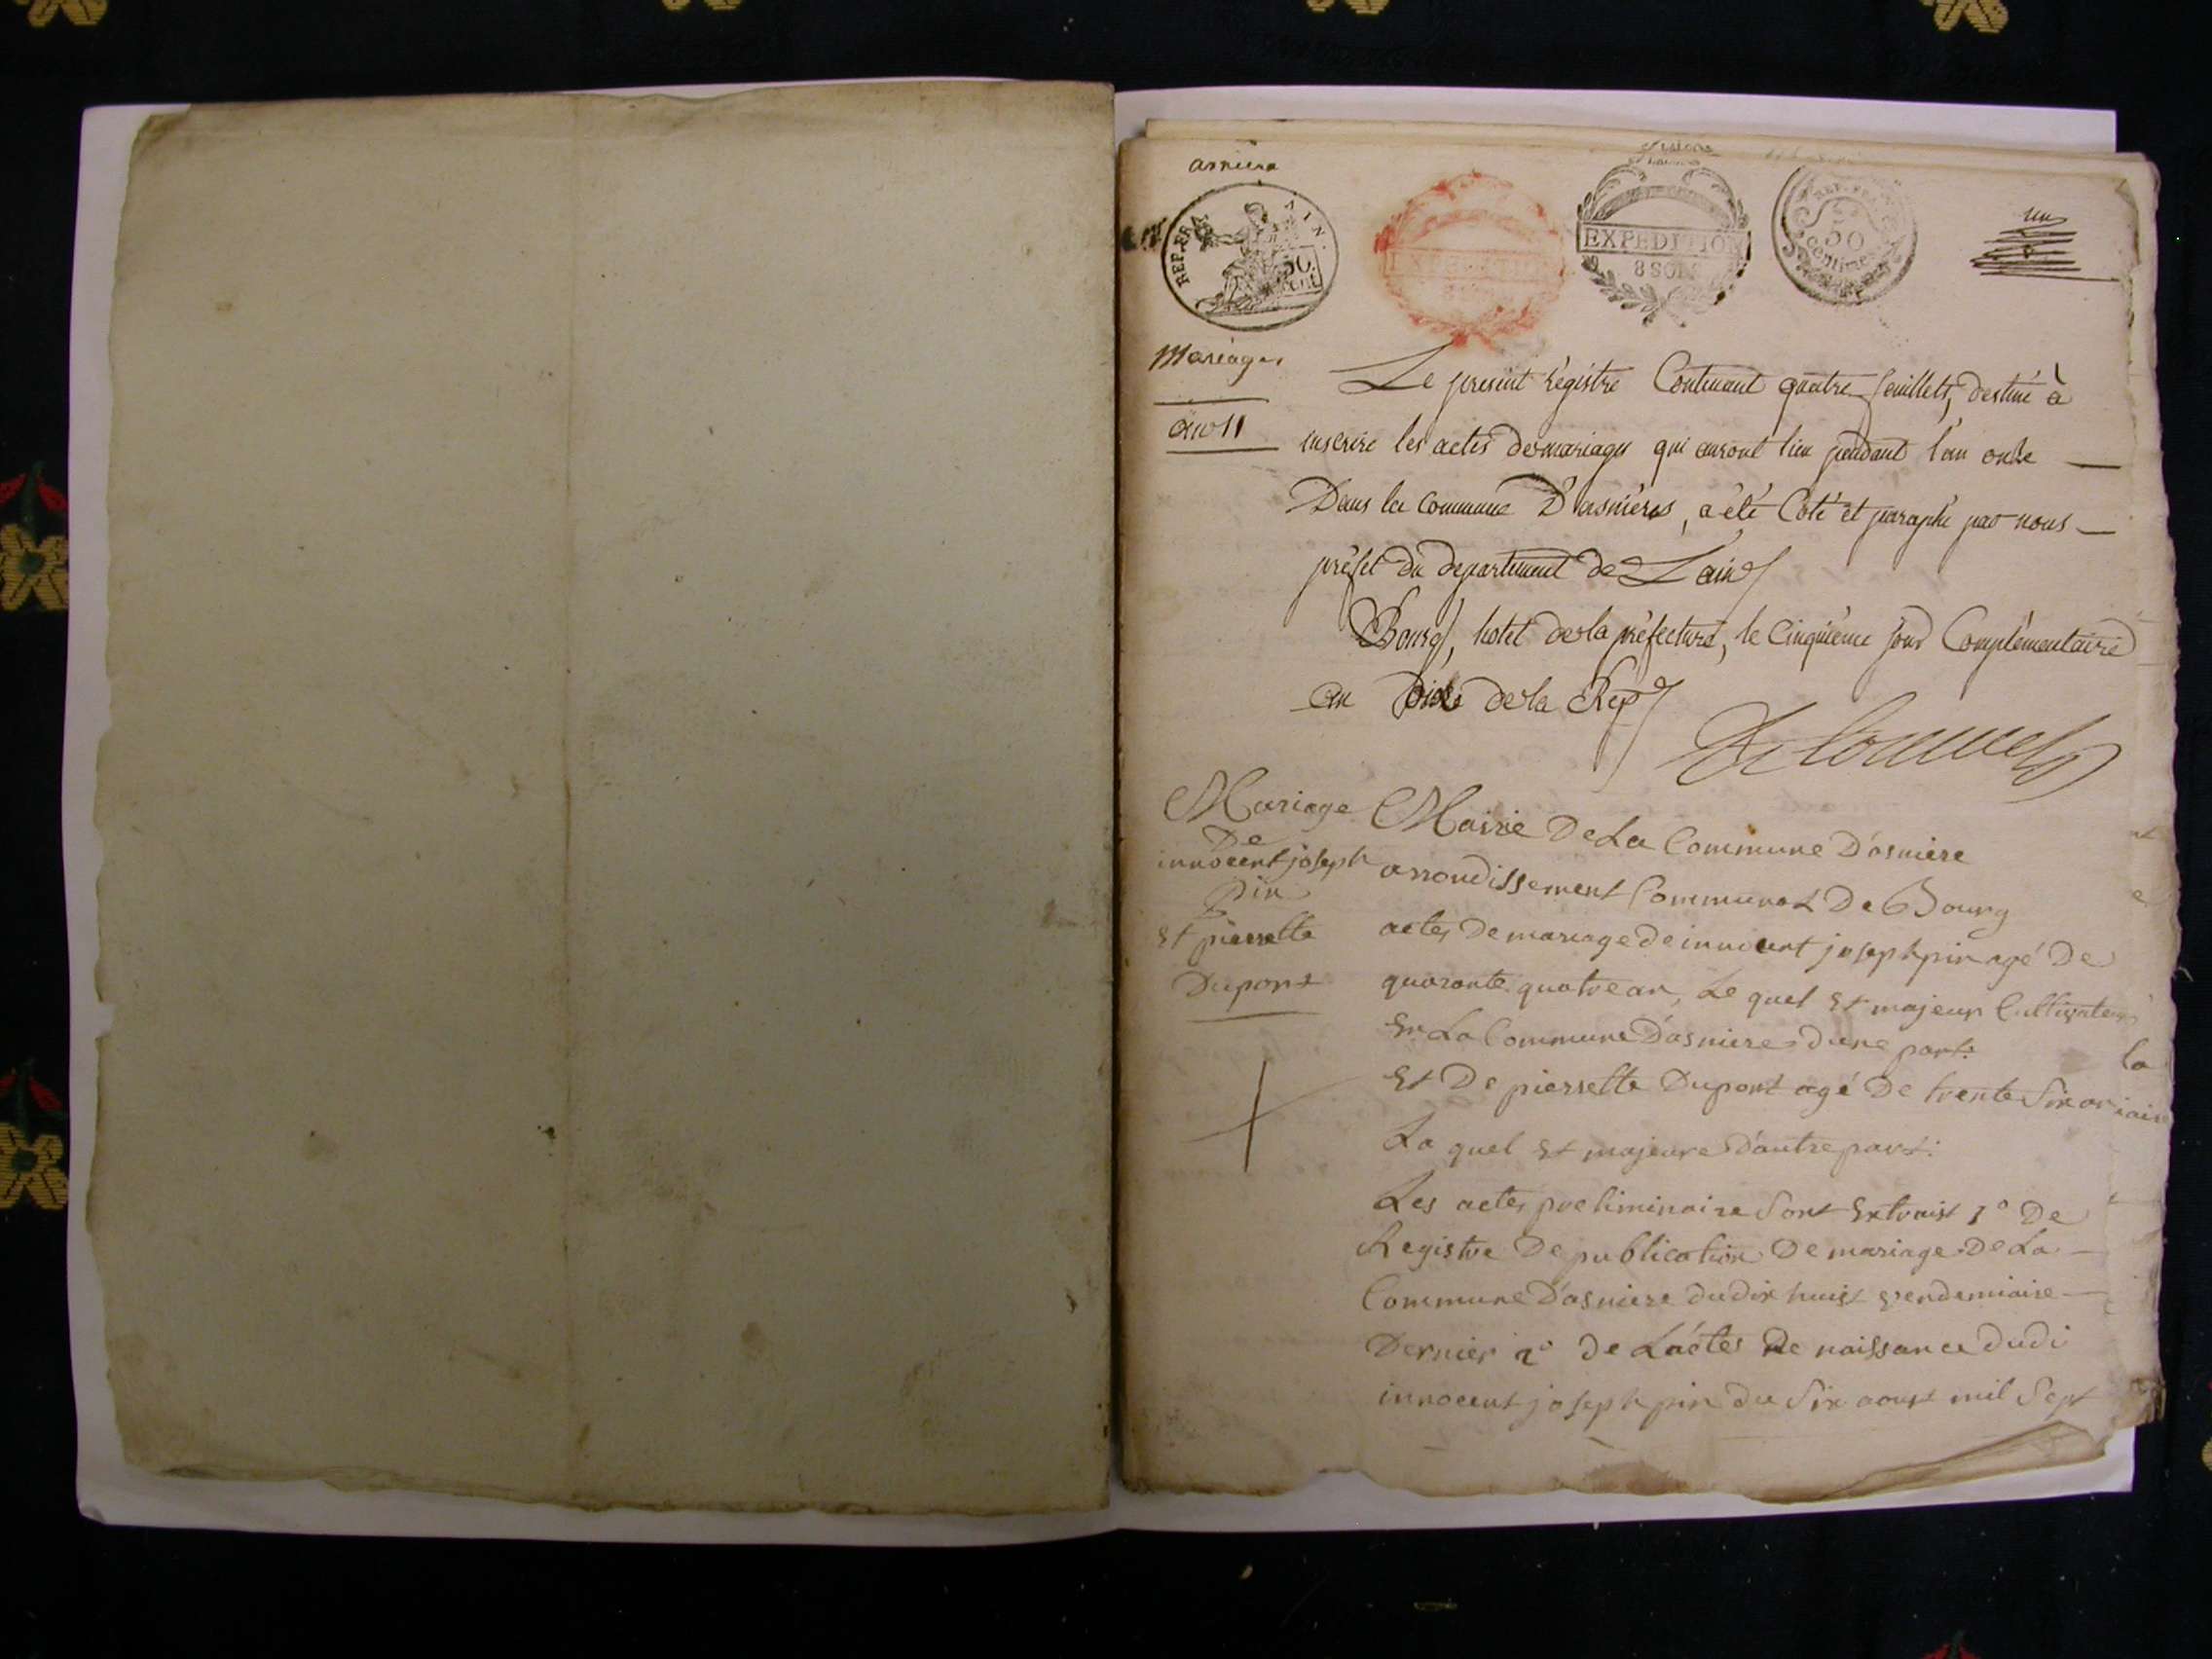 asniere
REP. FRA. AIN.
50 cent.
EXPEDITION
EXPEDITION
8 SOLS
REP. FRA.
50
centimes
un
Mariages
an 11
Le present régistre Contenant quatre feuillets, destiné à
inscrire les actes de mariages qui auront lieu pendant l'an onze
Dans la commune D'asnières, a été Coté et paraphé par nous
préfet du departement de L'ain
Bourg, hotel de la préfecture, le Cinquième jour Complémentaire
an Dix de la Rep
Mariage
De
innocent joseph
pin
Et pierrette
Dupont
Mairie De La Commune D'asniere
arrondissement Communal De Bourg
actes De mariage de innocent joseph pin agé De
quarante quatre an, Le quel Et majeur Cultivateur
En La Commune D'asniere d'une part.
Et De pierrette Dupont agé De trente Six an
La quel Et majeure D'autre part.
Les actes preliminaire Sont Extraist 1° De
Registre De publication De mariage De La
Commune D'asniere du dix huist vendemiaire
Dernier 2° De L'actes De naissance dudi
innocent joseph pin du Six aoust mil Sept
la